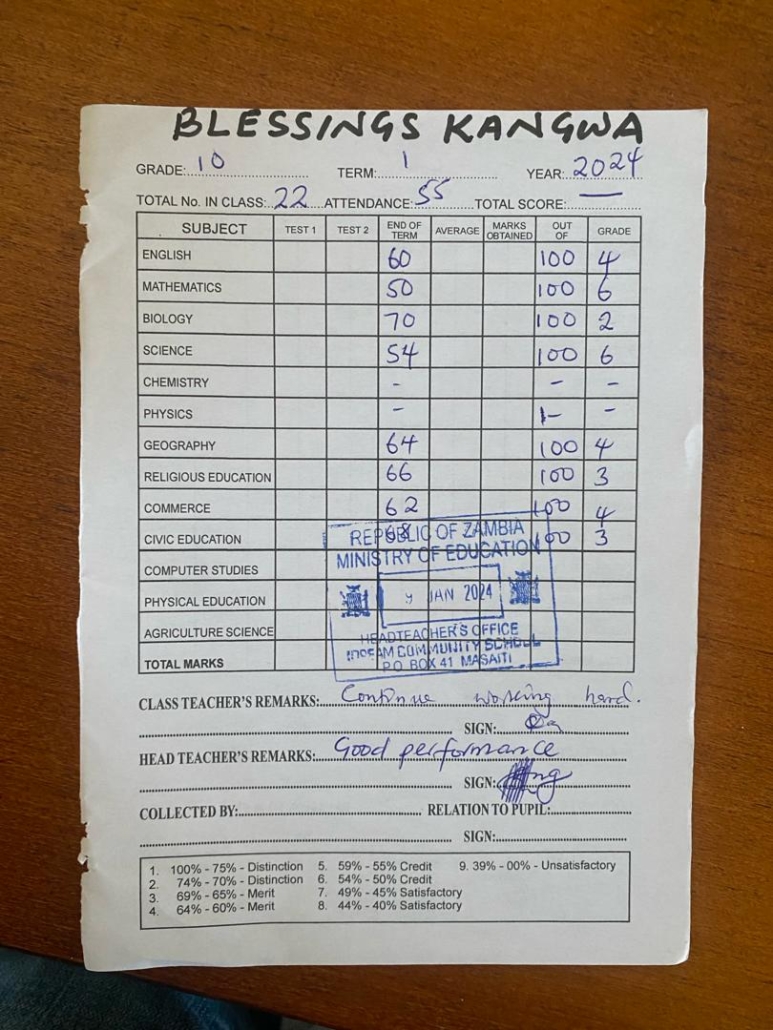 BLESSINGS KANGWA
GRADE: 10 TERM: 1 YEAR: 2024
TOTAL No. IN CLASS: 22 ATTENDANCE: 55 TOTAL SCORE:
SUBJECT TEST 1 TEST 2 END OF TERM AVERAGE MARKS OBTAINED OUT OF GRADE
ENGLISH 60 100 4
MATHEMATICS 50 100 6
BIOLOGY 70 100 2
SCIENCE 54 100 6
CHEMISTRY - - -
PHYSICS - - -
GEOGRAPHY 64 100 4
RELIGIOUS EDUCATION 66 100 3
COMMERCE 62 100 4
CIVIC EDUCATION 68 100 3
COMPUTER STUDIES
PHYSICAL EDUCATION
AGRICULTURE SCIENCE
TOTAL MARKS
REPUBLIC OF ZAMBIA
MINISTRY OF EDUCATION
9 JAN 2024
HEADTEACHER'S OFFICE
COMMUNITY SCHOOL
P.O. BOX 41 MASAITI
CLASS TEACHER'S REMARKS: Continue working hard.
SIGN:
HEAD TEACHER'S REMARKS: Good performance
SIGN:
COLLECTED BY: RELATION TO PUPIL:
SIGN:
1. 100% - 75% - Distinction 5. 59% - 55% Credit 9. 39% - 00% - Unsatisfactory
2. 74% - 70% - Distinction 6. 54% - 50% Credit
3. 69% - 65% - Merit 7. 49% - 45% Satisfactory
4. 64% - 60% - Merit 8. 44% - 40% Satisfactory